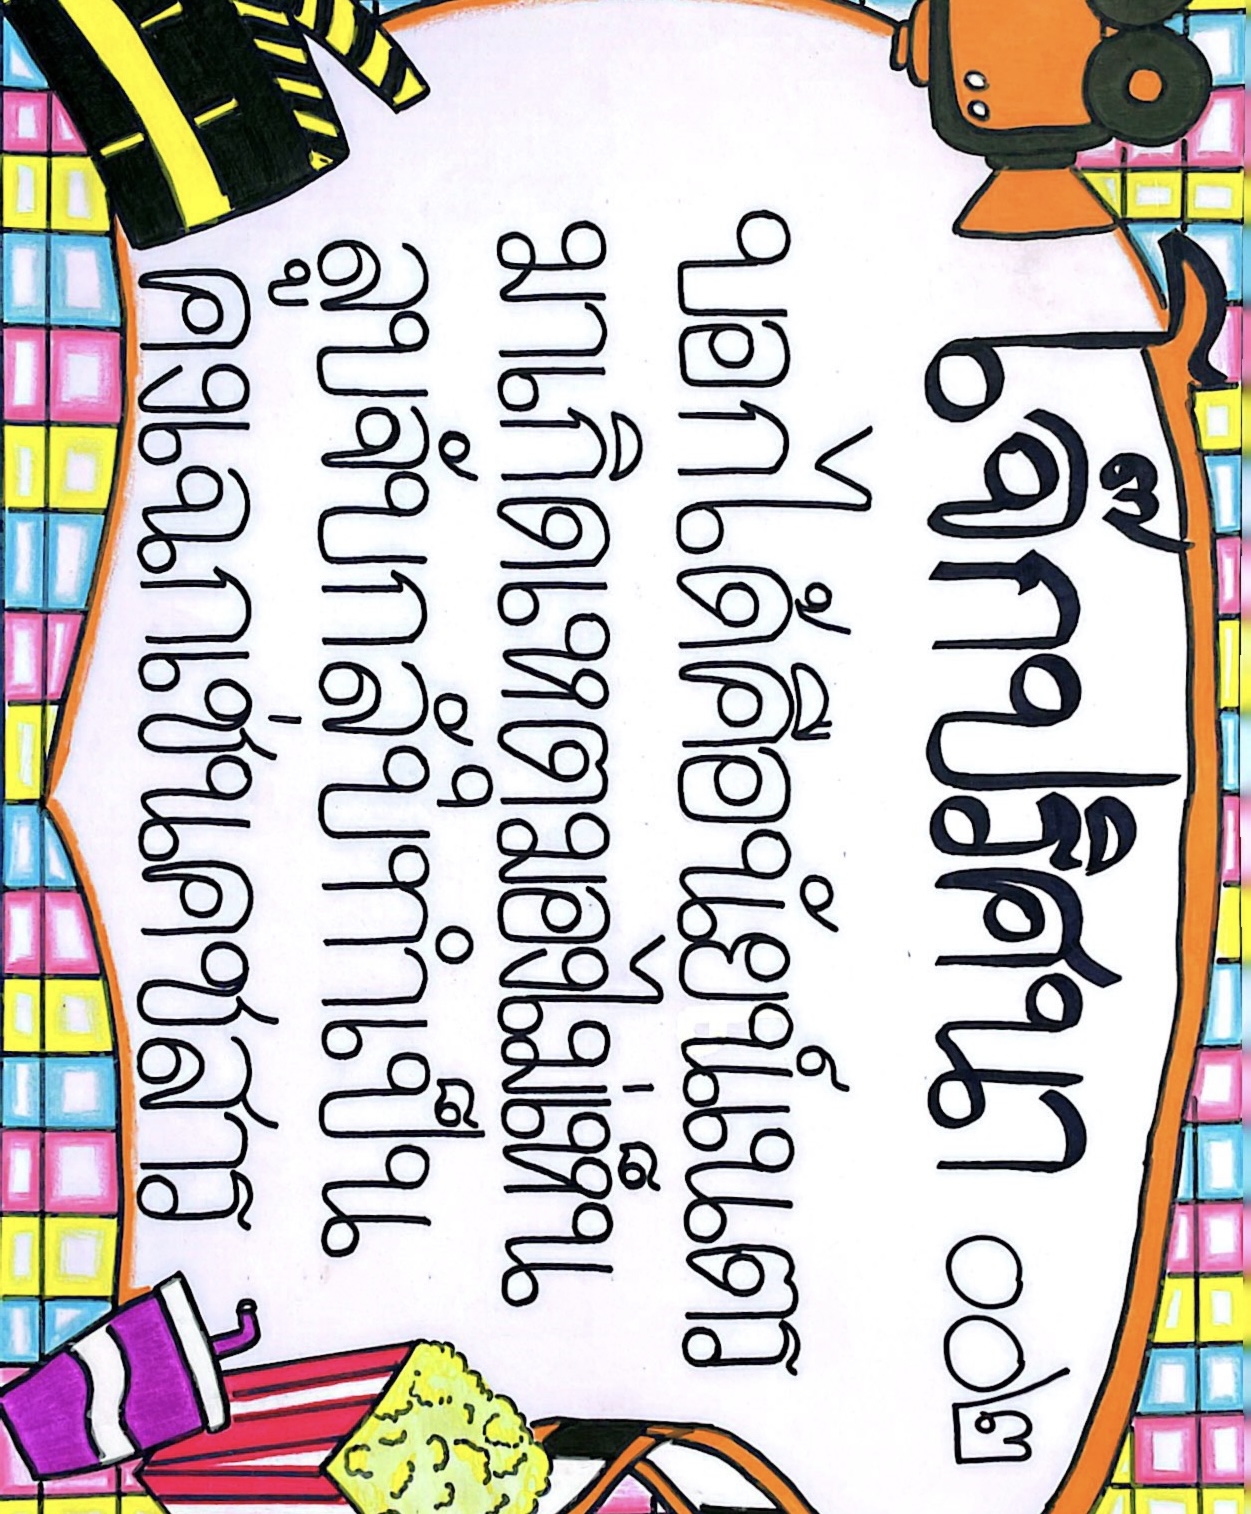 โจ๊กปริศนา ๐๐๒
บอกได้คือนัยน์เนตร
มาเกิดเหตุมองไม่เห็น
ลูบจับกลับทำเป็น
คงเฉกเช่นคชสาร